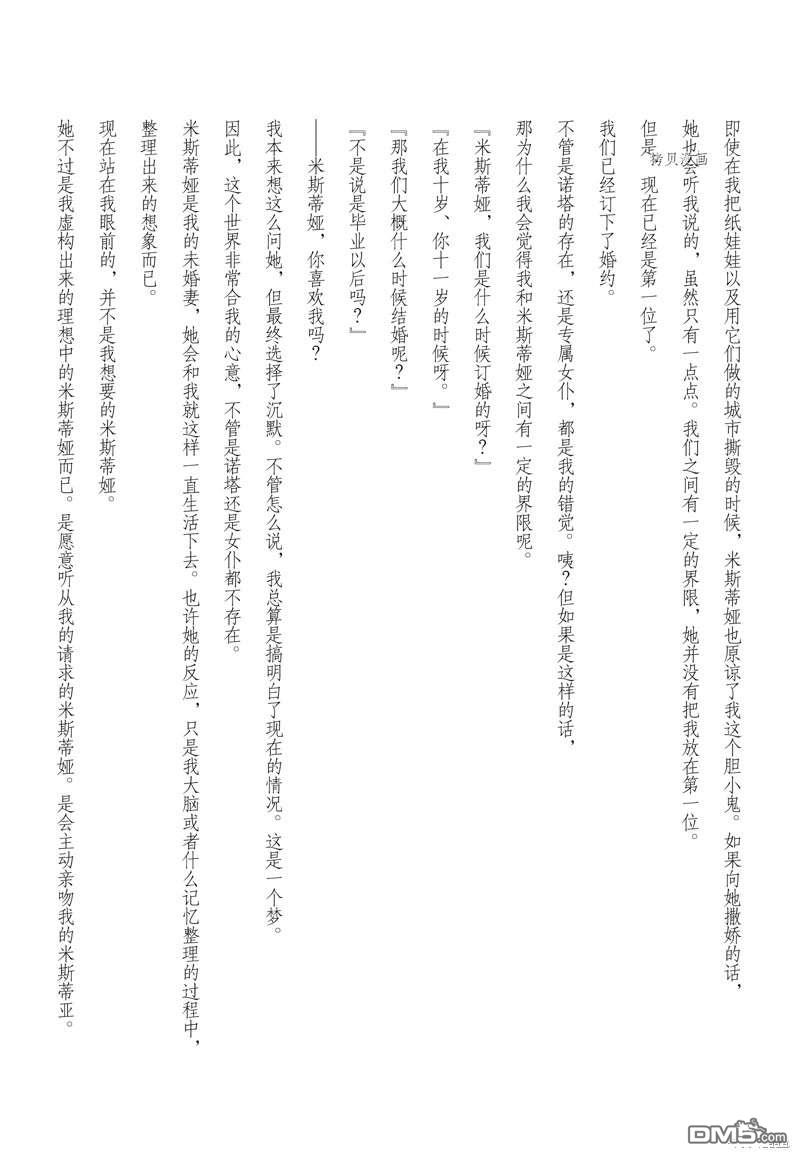 即使在我把纸娃娃以及用它们做的城市撕毁的时候，米斯蒂娅也原谅了我这个胆小鬼。如果向她撒娇的话，
她也会听我说的，虽然只有一点点。我们之间有一定的界限，她并没有把我放在第一位。
但是，现在已经是第一位了。
我们已经订下了婚约。
不管是诺塔的存在，还是专属女仆，都是我的错觉。咦？但如果是这样的话，
那为什么我会觉得我和米斯蒂娅之间有一定的界限呢。
『米斯蒂娅，我们是什么时候订婚的呀？』
『在我十岁、你十一岁的时候呀。』
『那我们大概什么时候结婚呢？』
『不是说是毕业以后吗？』
——米斯蒂娅，你喜欢我吗？
我本来想这么问她，但最终选择了沉默。不管怎么说，我总算是搞明白了现在的情况。这是一个梦。
因此，这个世界非常合我的心意，不管是诺塔还是女仆都不存在。
米斯蒂娅是我的未婚妻，她会和我就这样一直生活下去。也许她的反应，只是我大脑或者什么记忆整理的过程中，
整理出来的想象而已。
现在站在我眼前的，并不是我想要的米斯蒂娅。
她不过是我虚构出来的理想中的米斯蒂娅而已。是愿意听从我的请求的米斯蒂娅。是会主动亲吻我的米斯蒂亚。
拷贝漫画
DM5.com